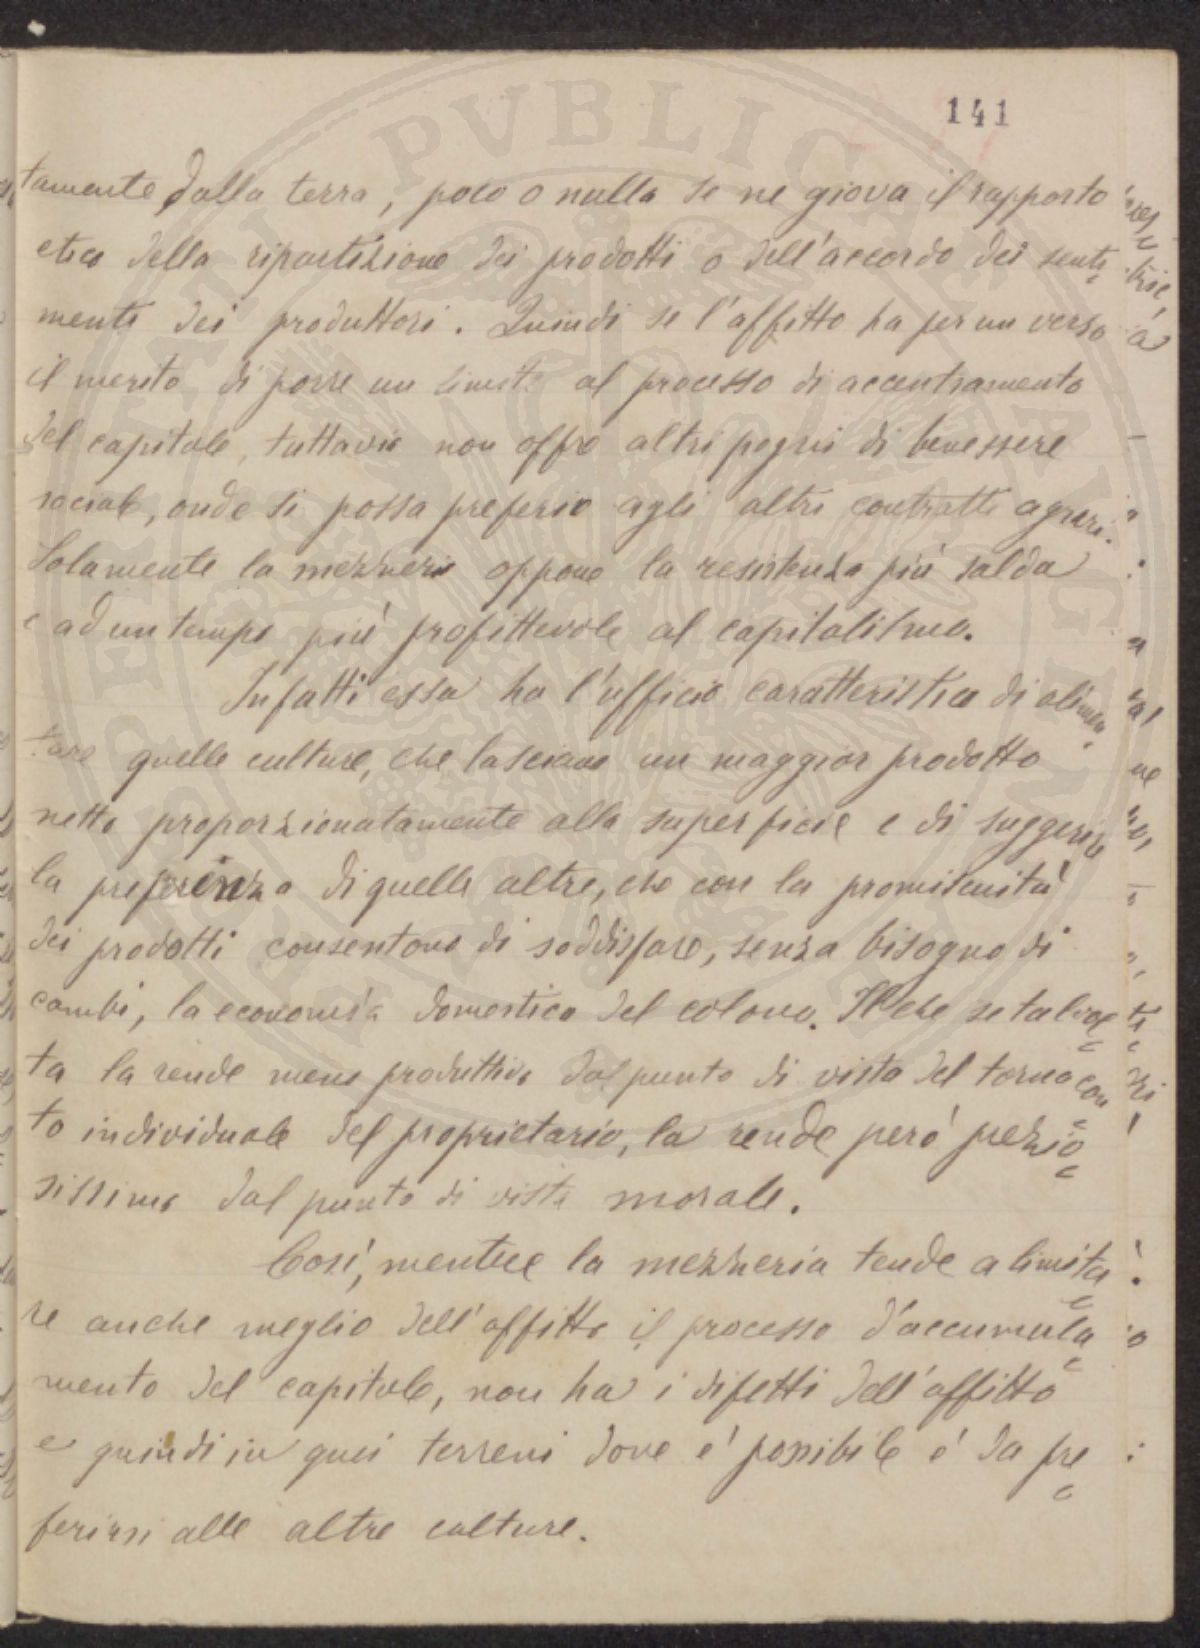 141
tamente dalla terra, poco o nulla se ne giova il rapporto
etico della ripartizione dei prodotti o dell'accordo dei senti
menti dei produttori. Quindi se l'affitto ha per un verso
il merito di porre un limite al processo di accentramento
del capitale, tuttavia non offre altri pegni di benessere
sociale, onde si possa preferire agli altri contratti agrari.
Solamente la mezzeria oppone la resistenza più salda
e ad un tempo più profittevole al capitalismo.
Infatti essa ha l'ufficio caratteristico di alimen
tare quelle culture, che lasciano un maggior prodotto
netto proporzionatamente alla superficie e di suggerire
la preferenza di quelle altre, che con la promiscuità
dei prodotti consentono di soddisfare, senza bisogno di
cambi, la economia domestica del colono. Il che se talvol
ta la rende meno produttiva dal punto di vista del tornacon
to individuale del proprietario, la rende però prezio
sissima dal punto di vista morale.
Così, mentre la mezzeria tende a limita
re anche meglio dell'affitto il processo d'accumula
mento del capitale, non ha i difetti dell'affitto
e quindi in quei terreni dove e' possibile e' da pre
ferirsi alle altre culture.